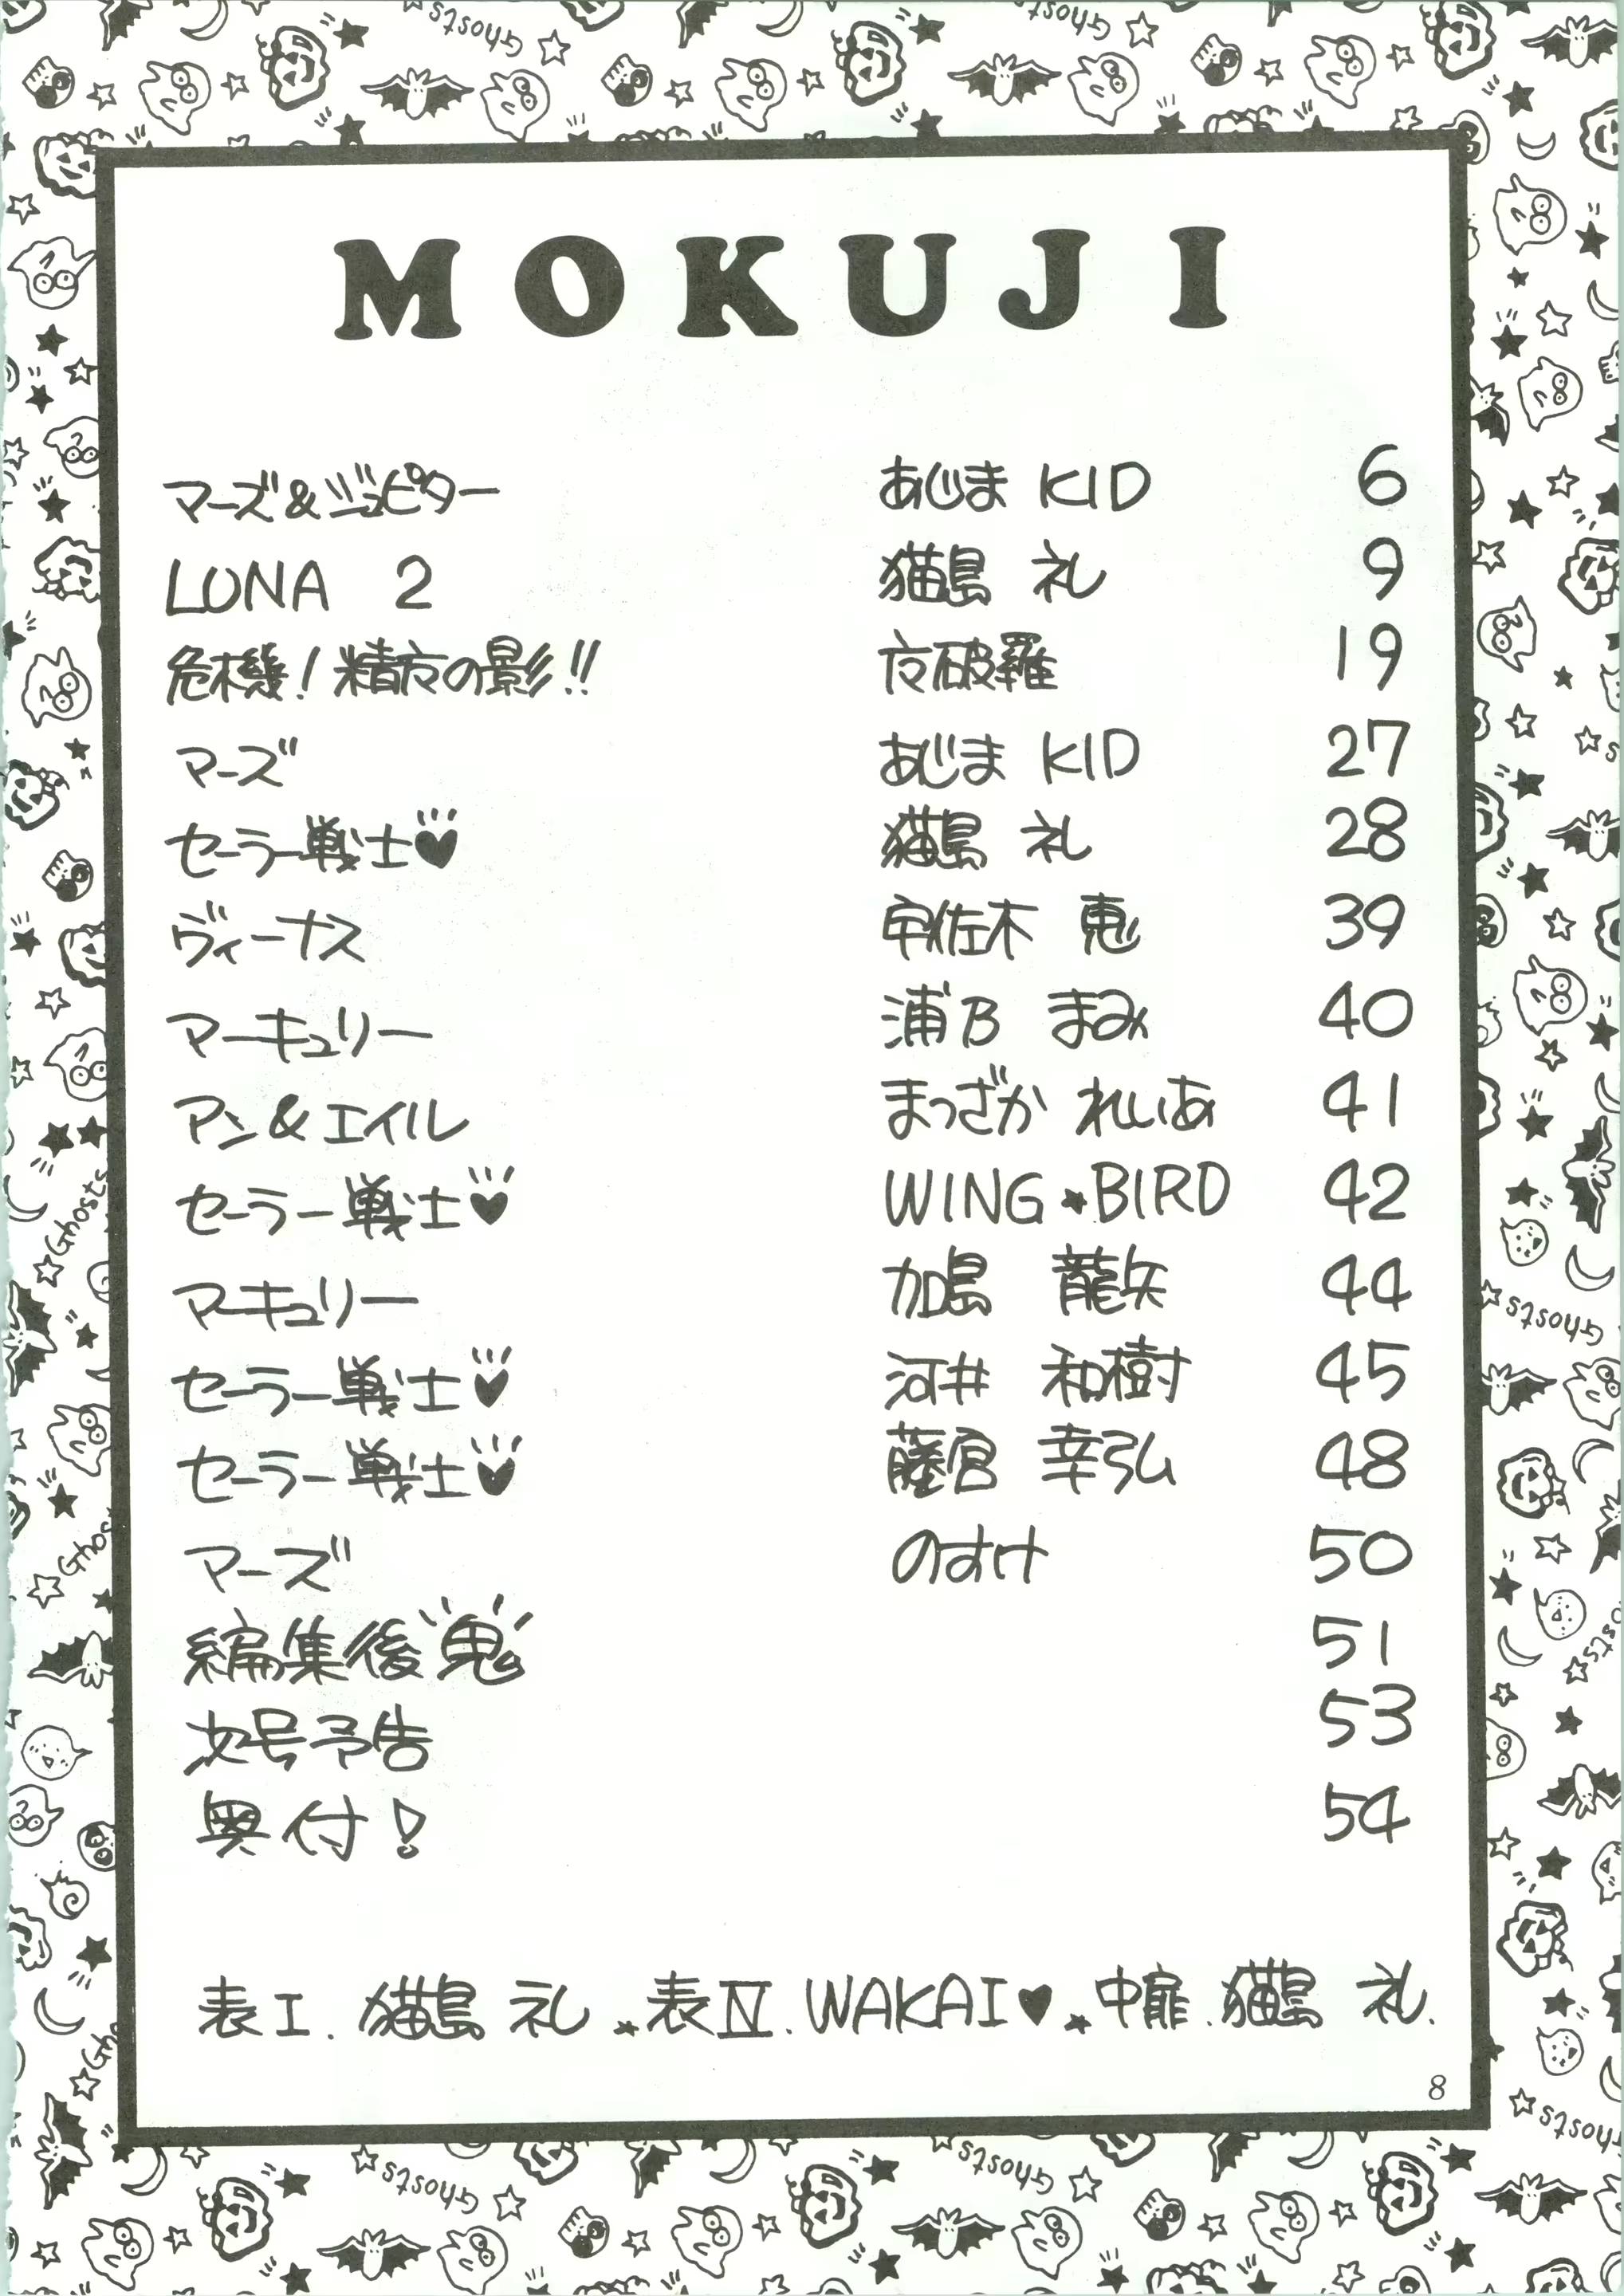 MOKUJI
マーズ&ジュピター あじま KID 6
LUNA 2 猫島 礼 9
危機!精方の影!! 夜破羅 19
マーズ あじま KID 27
セーラー戦士♥ 猫島 礼 28
ヴィーナス 宇佐木 恵 39
マーキュリー 浦乃 まみ 40
アン&エイル まつざか れいあ 41
セーラー戦士♥ WING★BIRD 42
マーキュリー 加島 龍矢 44
セーラー戦士♥ 河井 和樹 45
セーラー戦士♥ 藤宮 幸弘 48
マーズ のすけ 50
編集後鬼 51
次号予告 53
奥付! 54
表I. 猫島 礼 ★表IV. WAKAI♥ ★中扉. 猫島 礼.
8
Ghosts
Ghosts
Ghosts
Ghosts
Ghosts
Ghosts
Ghosts
Ghosts